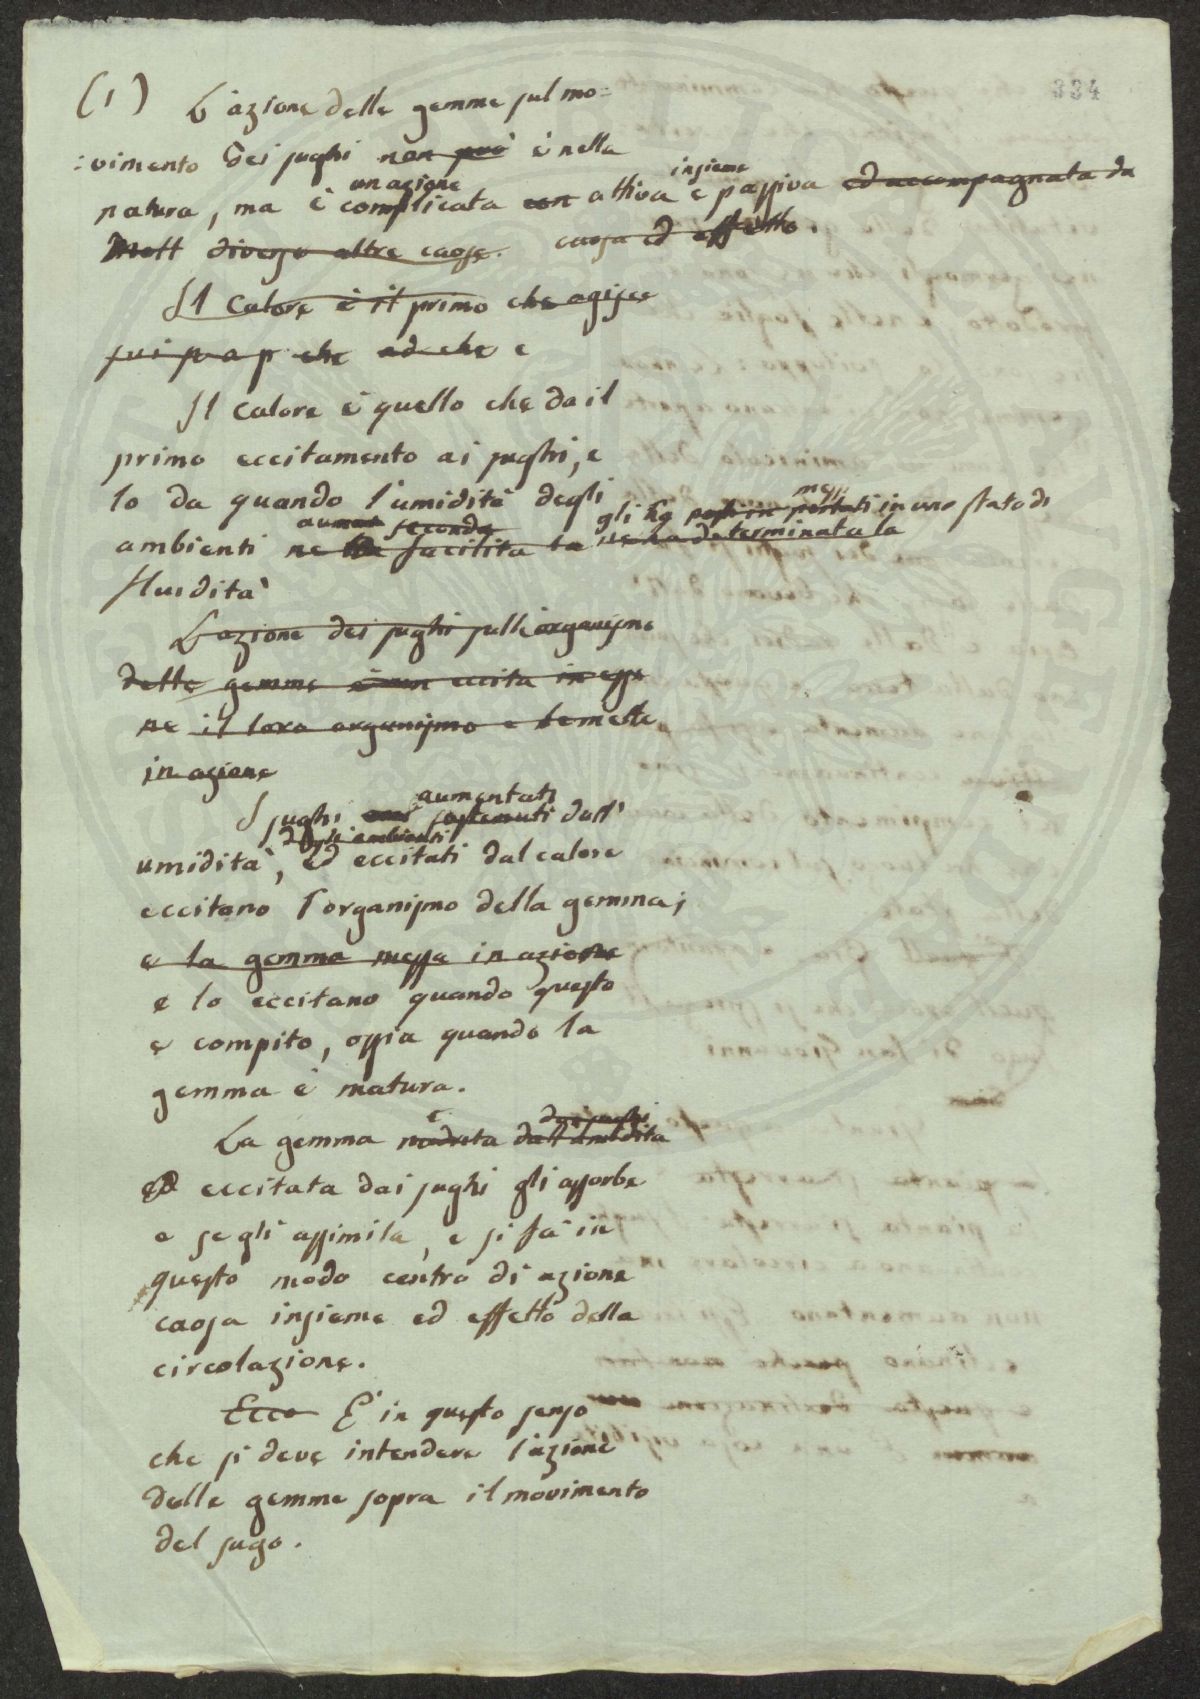 334
(1) L'azione delle gemme sul mo=
:vimento dei sughi non può è nella
un azione insieme
natura, ma è complicata con attiva e passiva ed accompagnata da
Molt diverse altre caose. caosa ed effetto
Il Calore è il primo che agisce
sui p a p che ad che e
Il Calore è quello che da il
primo eccitamento ai sughi, e
lo da quando l'umidità degli
aumen seconda gli ha messi in uno stato di
ambienti ne facilita la ne ha determinata la
fluidità
L'azione dei sughi sull'organismo
delle gemme è non eccita in esse
ne il loro organismo e le mette
in azione
aumentati
I sughi sostenuti dall'
degli ambienti
umidità, ed eccitati dal calore
eccitano l'organismo della gemma;
e la gemma messa in azione
e lo eccitano quando questo
e compito, ossia quando la
gemma è matura.
è dai sughi
La gemma nodrita dall'umidita
ed eccitata dai sughi gli assorbe
e se gli assimila, e si fà in
questo modo centro di azione
caosa insieme ed effetto della
circolazione.
Ecco E' in questo senso
che si deve intendere l'azione
delle gemme sopra il movimento
del sugo.